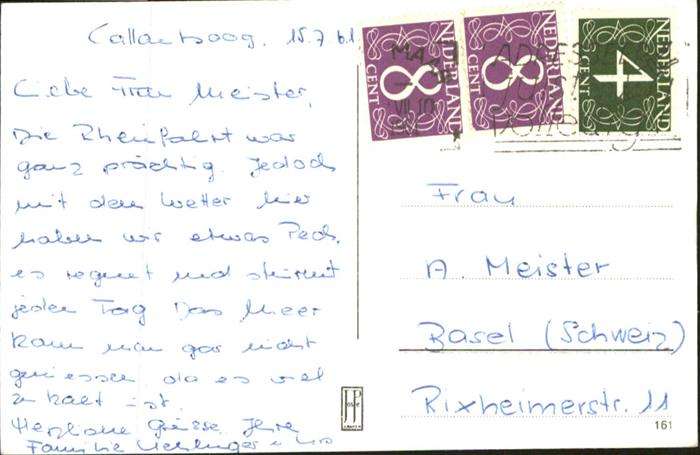 Callantsoog. 15.7.61
Liebe Frau Meister,
Die Rheinfahrt war
ganz prächtig. Jedoch
mit dem Wetter hier
haben wir etwas Pech.
es regnet und stürmt
jeden Tag Das Meer
kann man gar nicht
geniessen da es viel
zu kalt ist.
Herzliche Grüsse Ihre
Familie
NEDERLAND
8
CENT
NEDERLAND
8
CENT
NEDERLAND
4
CENT
Frau
A. Meister
Basel (Schweiz)
Rixheimerstr. 11
JosPé
161